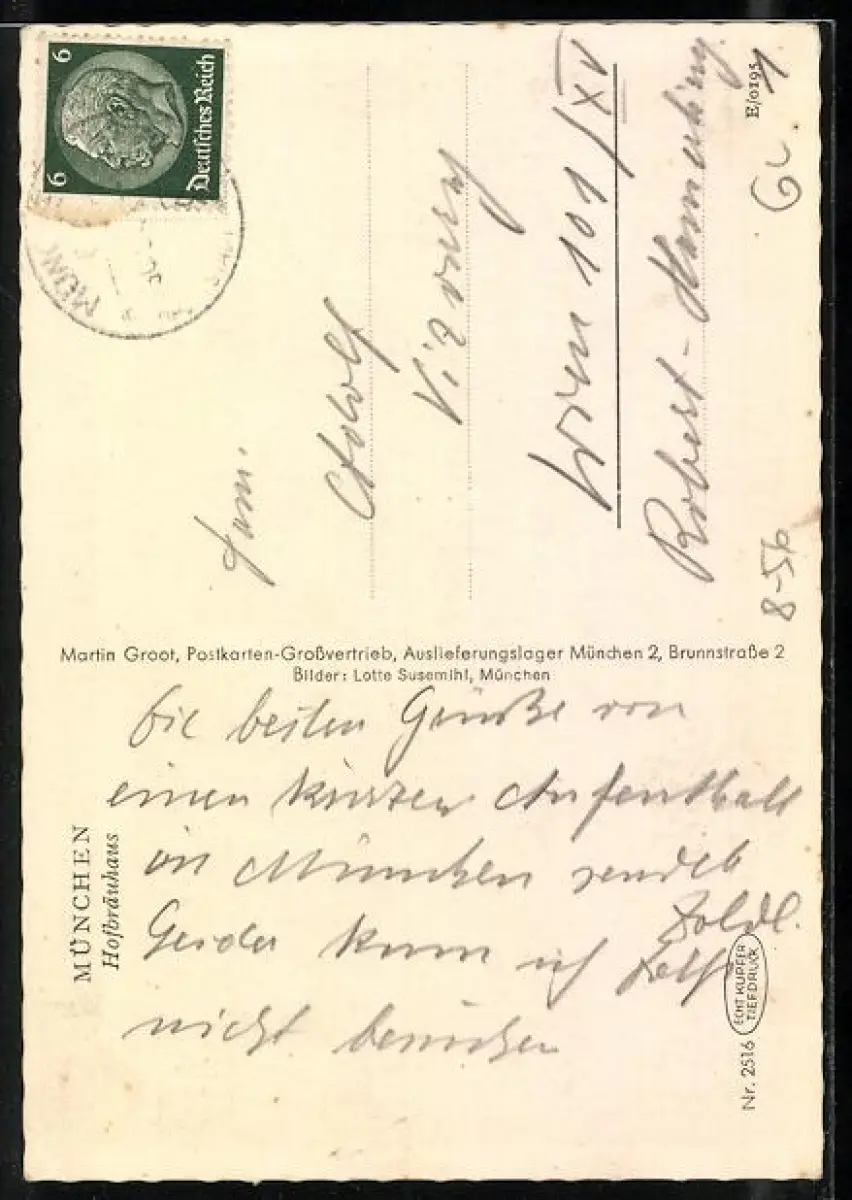 6
6
Deutsches Reich
Fam.
Adolf
Wien 101/XV
Robert-Hamerling
E/0195
8-56
Martin Groot, Postkarten-Großvertrieb, Auslieferungslager München 2, Brunnstraße 2
Bilder: Lotte Susemihl, München
MÜNCHEN
Hofbräuhaus
Die besten Grüße von
einen kurzen Aufenthalt
in München sendet
Poldl.
Leider kann ich
nicht besuchen
Nr. 2516
ECHT KUPFER
TIEFDRUCK